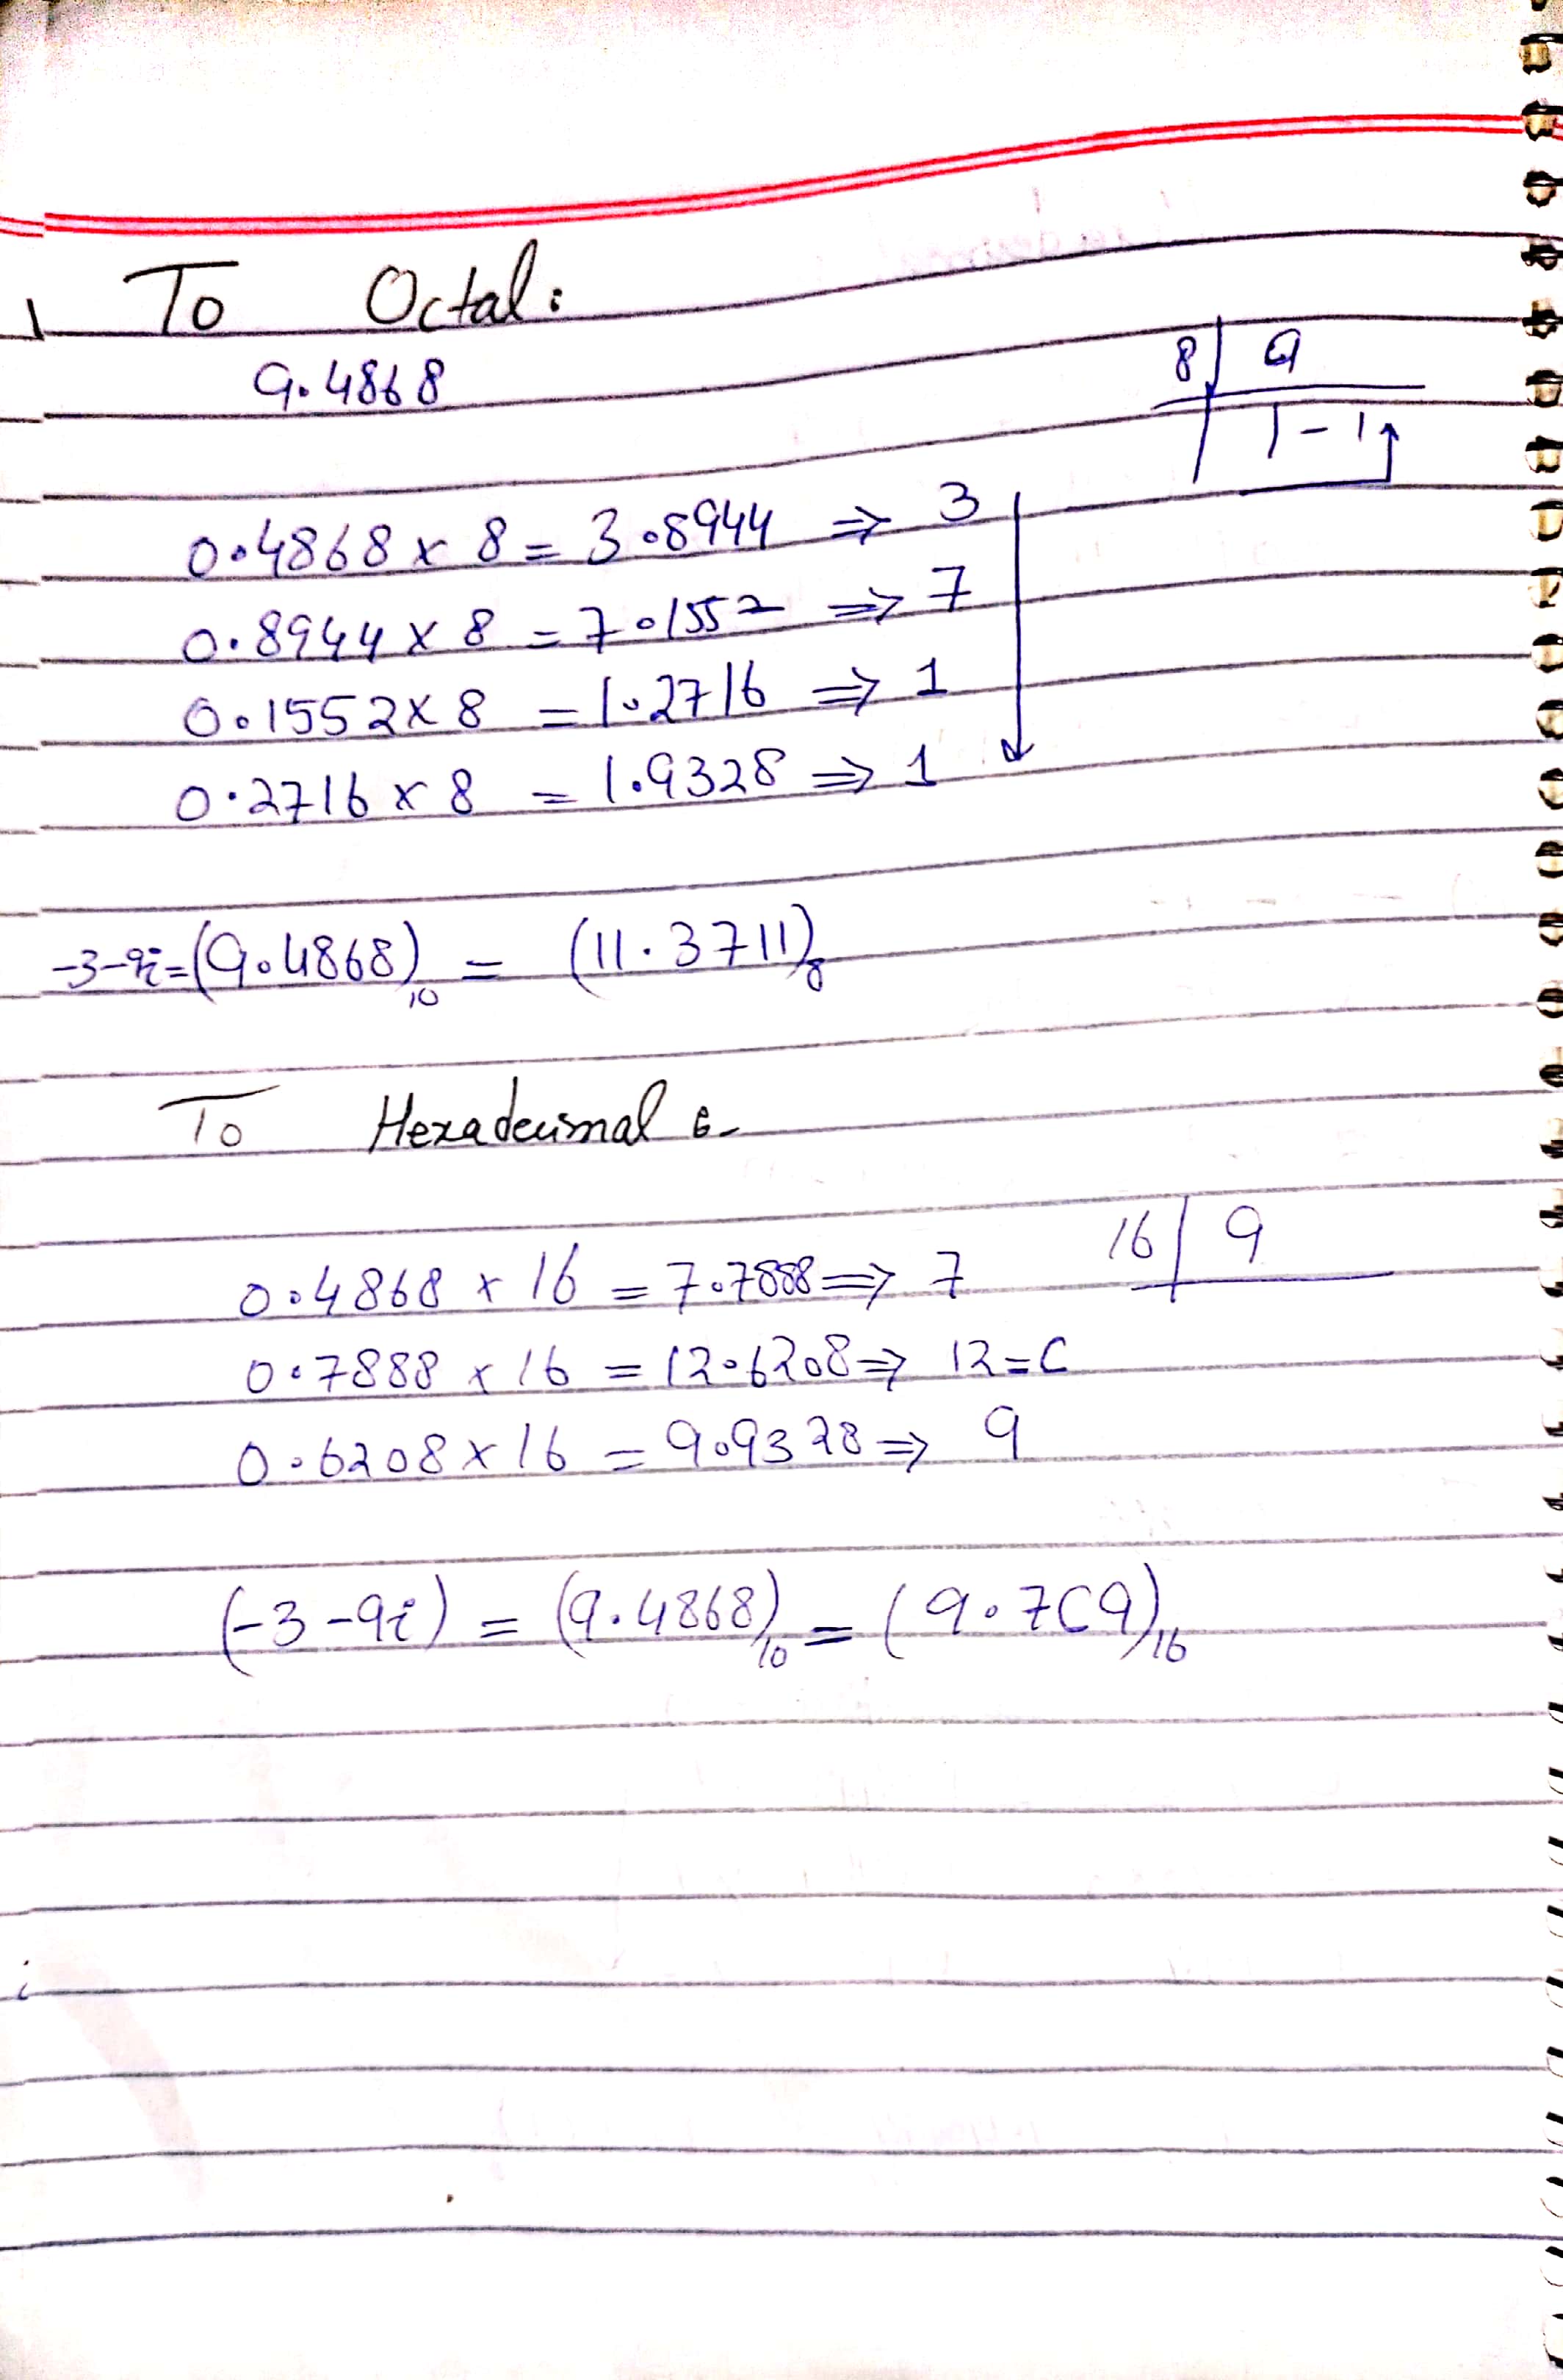 To Octal:
9.4868
8 9
1-1
0.4868 x 8 = 3.8944 ⇒ 3
0.8944 x 8 = 7.1552 ⇒ 7
0.1552 x 8 = 1.2716 ⇒ 1
0.2716 x 8 = 1.9328 ⇒ 1
-3-9i=(9.4868)10 = (11.3711)8
To Hexadecimal :-
16 9
0.4868 x 16 = 7.7888 ⇒ 7
0.7888 x 16 = 12.6208 ⇒ 12=C
0.6208 x 16 = 9.9328 ⇒ 9
(-3-9i) = (9.4868)10 = (9.7C9)16